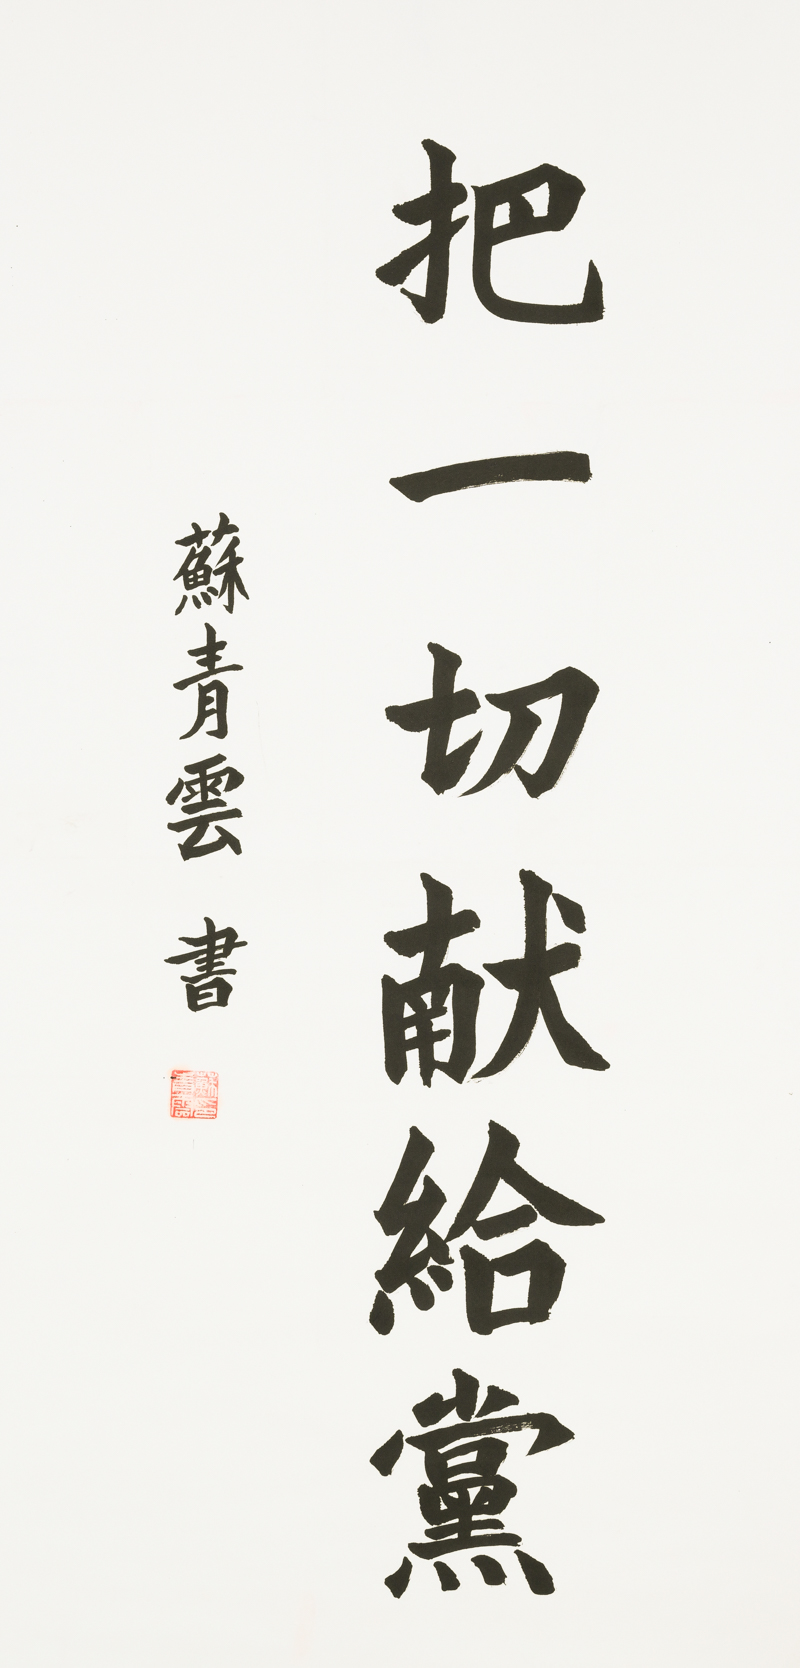 把一切献給黨
蘇青雲 書